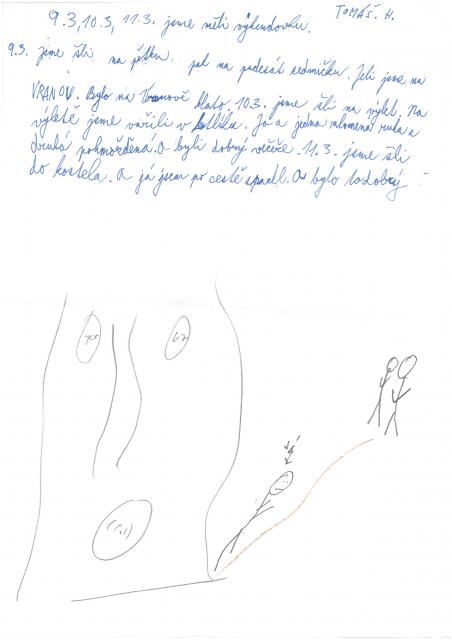 TOMÁŠ. H.
9.3, 10.3, 11.3. jsme měli výkendovku.
9.3. jsme šli na pětku. pak na padesát sedmičku. Jeli jsme na
VRANOV. Bylo na Vranově blato. 10.3. jsme šli na výlet. Na
výletě jsme vařili v kotlíku. Je a jedna zlomena ruka a
druhá pohmožděna. A byli dobrý večeře. 11.3. jsme šli
do kostela. A já jsem po cestě spadl. A bylo to dobrý
já